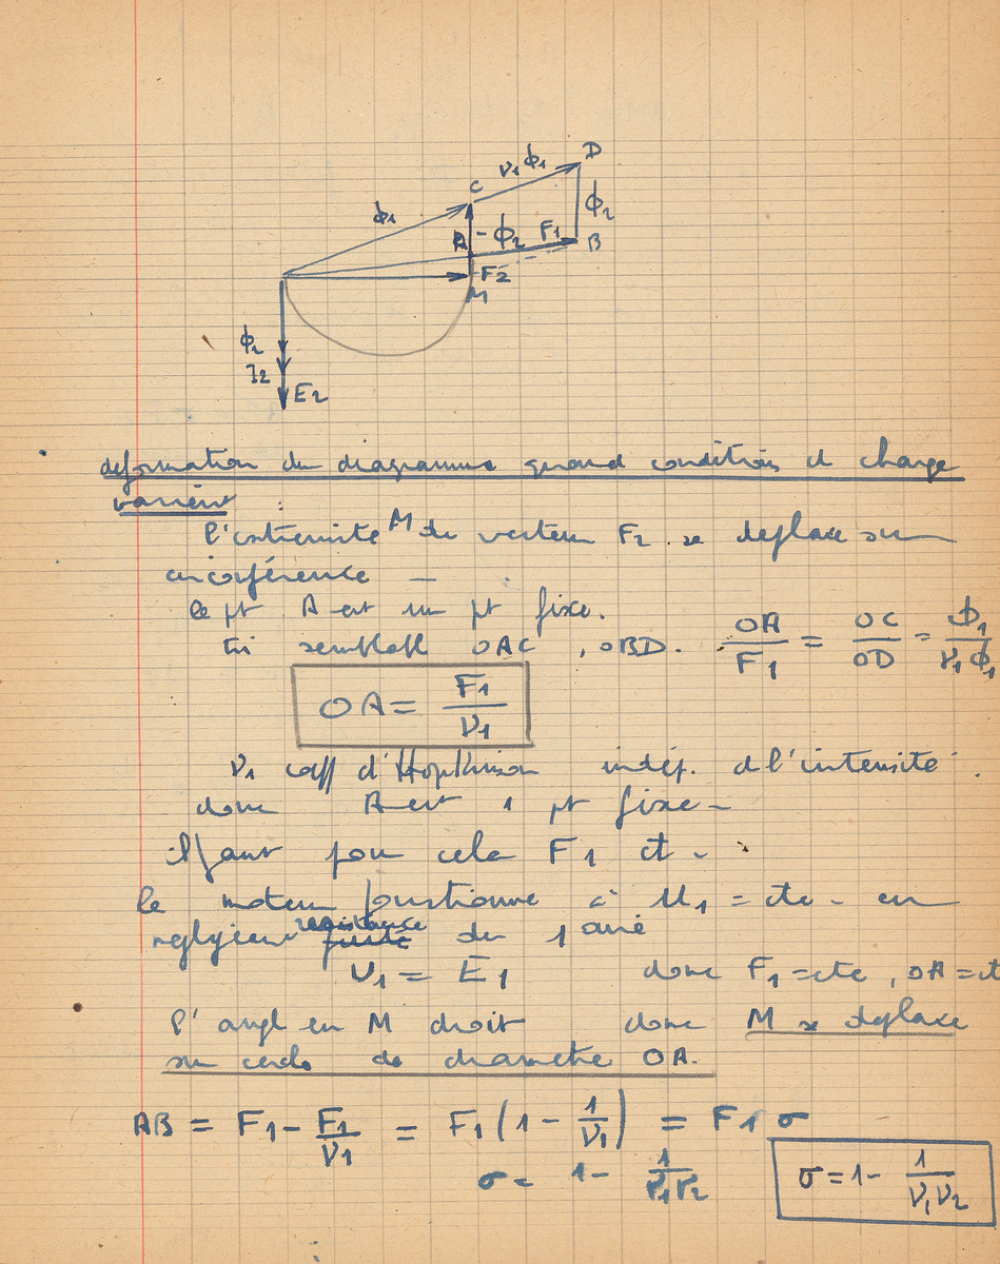 D
ν₁ ϕ₁
C
ϕ₁
ϕ₂
A - ϕ₂ F₁ B
F₂
M
ϕ₂
J₂
E₂
deformation du diagramme quand conditions d charge
varient :
l'extremité M du vecteur F₂ se deplace sur
circonférence —
le pt A est un pt fixe.
tri semblabl OAC , OBD. OA/F₁ = OC/OD = ϕ₁/ν₁ϕ₁
OA = F₁/ν₁
ν₁ coeff d'Hopkinson indép. d l'intensité .
donc A est 1 pt fixe –
il faut pour cela F₁ ct -
le moteur fonctionne à U₁ = cte - en
negligeant resistance du 1aire
U₁ = E₁ donc F₁ = cte , OA = ct
l'angl en M droit donc M se deplace
sur cercle de diametre OA.
AB = F₁ - F₁/ν₁ = F₁ (1 - 1/ν₁) = F₁ σ
σ = 1 - 1/ν₁ν₂ σ = 1 - 1/ν₁ν₂